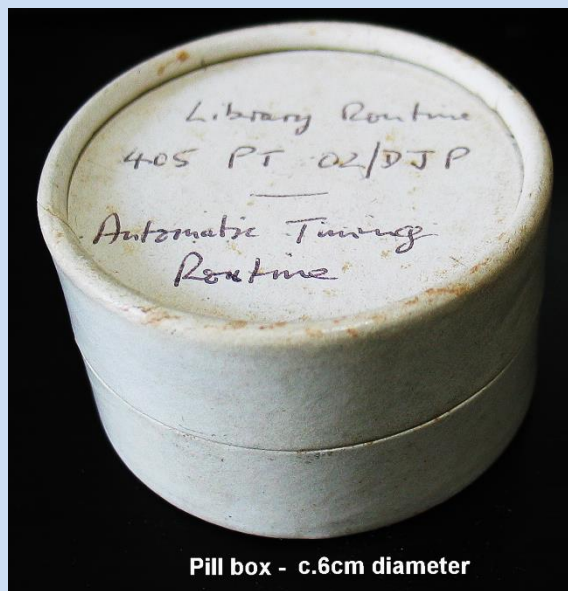 Library Routine
405 PT 02/DJP
Automatic Timing
Routine
Pill box - c.6cm diameter